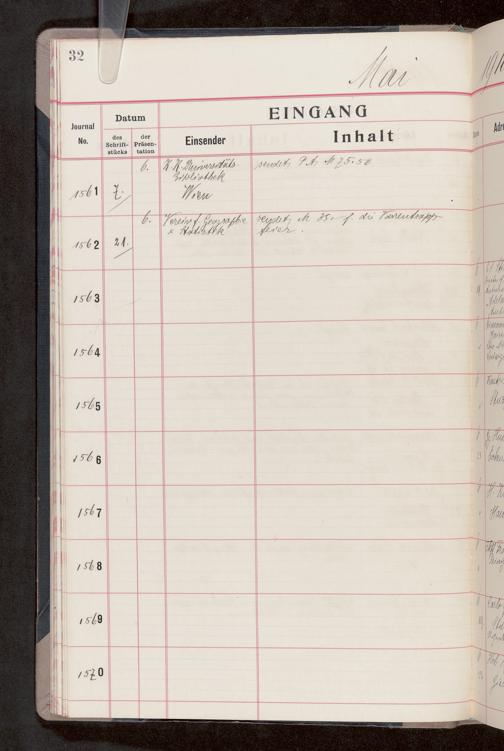 32
Mai
191
Journal No.
Datum
EINGANG
des Schrift-stücks
der Präsen-tation
Einsender
Inhalt
Adre
1561
7.
6.
K. K. Universitäts
Bibliothek
Wien
sendet P.A. M 75.50
1562
21.
6.
Verein f. Geographie
& Statistik
sendet M 35.- f. die Varrentrapp-
feier.
1563
1564
1565
1566
1567
1568
1569
1570